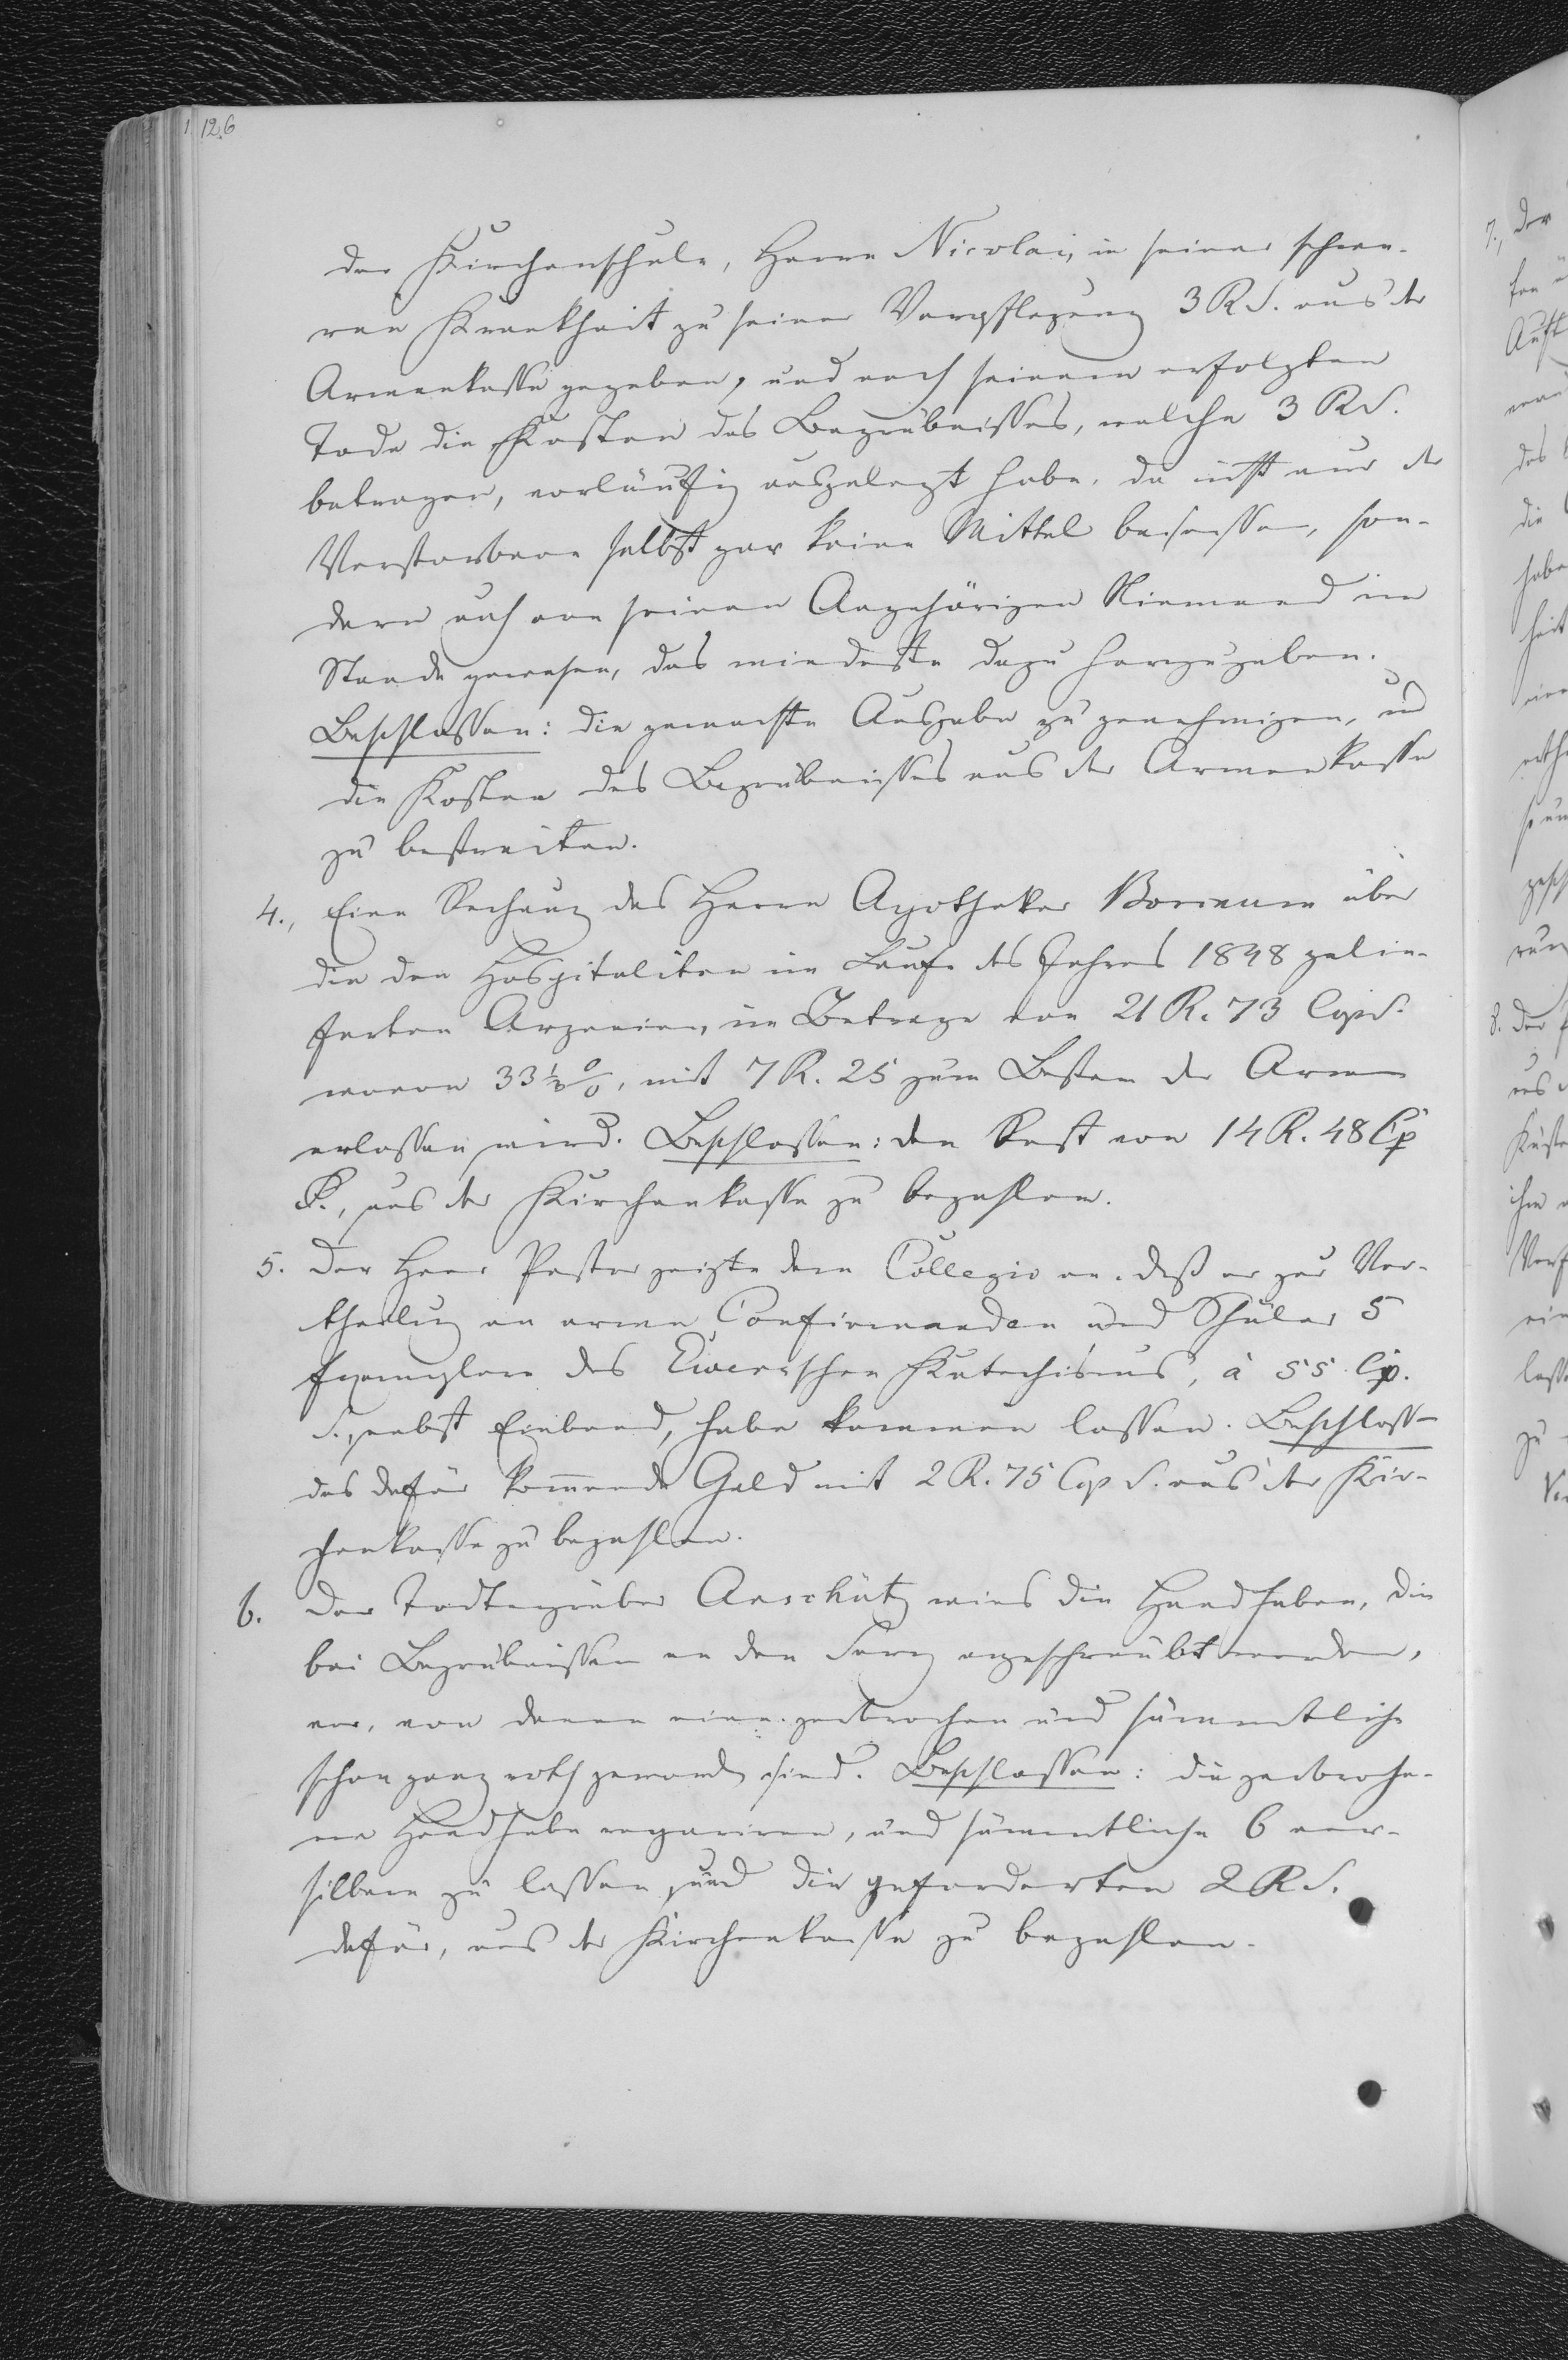 126
der Kirchenschule, Herrn Nicolai, in seiner schwe-
ren Krankheit zu seiner Verpflegung 3 R S. aus der
Armenkasse gegeben, und nach seinem erfolgten
Tode die Kosten des Begräbnisses, welche 3 R S.
betragen, vorläufig ausgelegt habe, da nicht nur der
Verstorbene selbst gar keine Mittel besessen, son-
dern auch von seinen Angehörigen Niemand im
Stande gewesen, das mindeste dazu herzugeben.
Beschlossen: die gemachte Ausgabe zu genehmigen, und
die Kosten des Begräbnisses aus der Armenkasse
zu bestreiten.
4., Eine Rechnung des Herrn Apotheker Bornaum über
die den Hospitaliten im Laufe des Jahres 1848 gelie-
ferten Arzeneien, im Betrage von 21 R. 73 Cop S.
wovon 33 1/3 %, mit 7 R. 25 zum Besten der Armen
erlassen wird. Beschlossen: den Rest von 14 R. 48 Cp
S., aus der Kirchenkasse zu bezahlen.
5. Der Herr Pastor zeigte dem Collegio an, daß er zur Ver-
theilung an arme Confirmanden und Schüler 5
Exemplare des Ewersschen Katechismus, à 55 Cp.
S., nebst Einband, habe kommen lassen. Beschlossen
das dafür kommende Geld mit 2 R. 75 Cop S. aus der Kir-
chenkasse zu bezahlen.
6. Der Todtengräber Anschütz wies die Handhaben, die
bei Begräbnissen an den Sarg angeschraubt werden,
vor, von denen eine zerbrochen und sämmtliche
schon ganz roth geworden sind. Beschlossen: die zerbroche-
ne Handhabe repariren, und sämmtliche 6 ver-
silbern zu lassen, und die geforderten 2 R S.
dafür, aus der Kirchenkasse zu bezahlen.
7., Der
8. Der